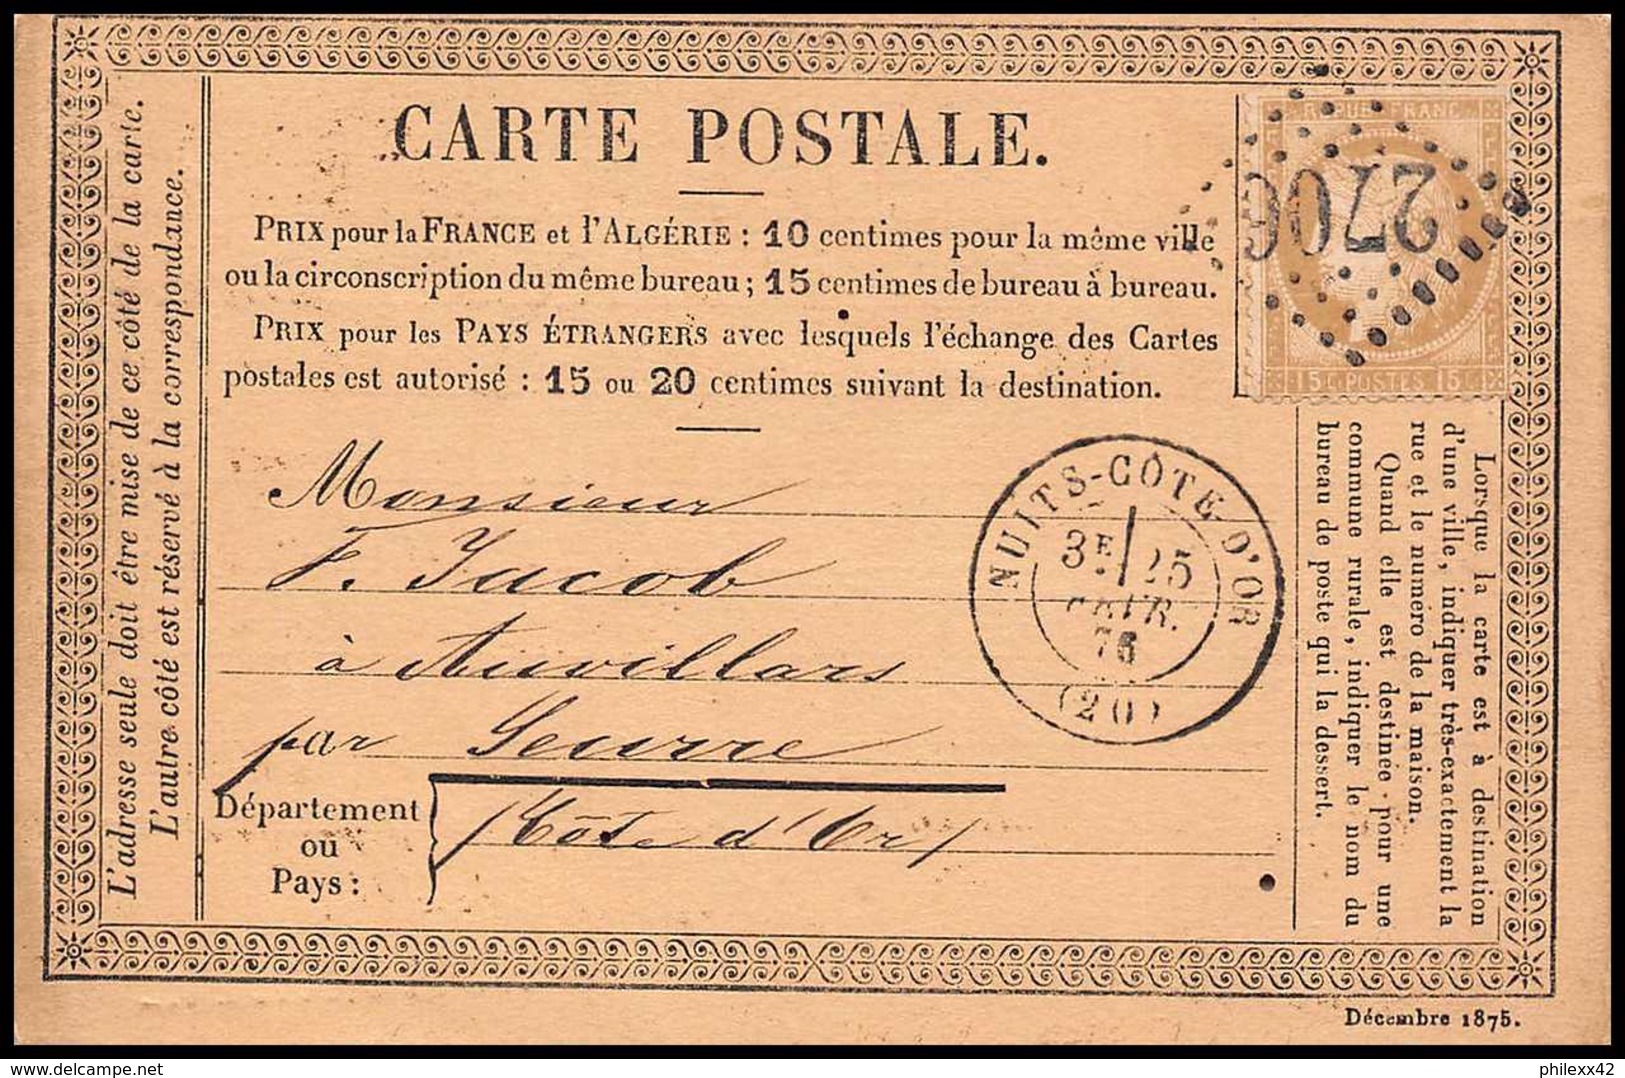 CARTE POSTALE.
PRIX pour la FRANCE et l'ALGÉRIE : 10 centimes pour la même ville
ou la circonscription du même bureau ; 15 centimes de bureau à bureau.
PRIX pour les PAYS ÉTRANGERS avec lesquels l'échange des Cartes
postales est autorisé : 15 ou 20 centimes suivant la destination.
L'adresse seule doit être mise de ce côté de la carte.
L'autre côté est réservé à la correspondance.
REPUB FRANC
15 C. POSTES 15 C.
Monsieur
F. Jacob
à Auvillars
par Seurre
Département
ou
Pays :
(Côte d'Or)
NUITS-CÔTE D'OR
3E 25
76
(20)
Lorsque la carte est à destination
d'une ville, indiquer très-exactement la
rue et le numéro de la maison.
Quand elle est destinée pour une
commune rurale, indiquer le nom du
bureau de poste qui la dessert.
Décembre 1875.
delcampe.net
philexx42